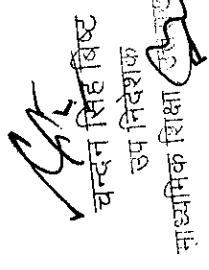 चन्दन सिंह बिष्ट
उप निदेशक
माध्यमिक शिक्षा